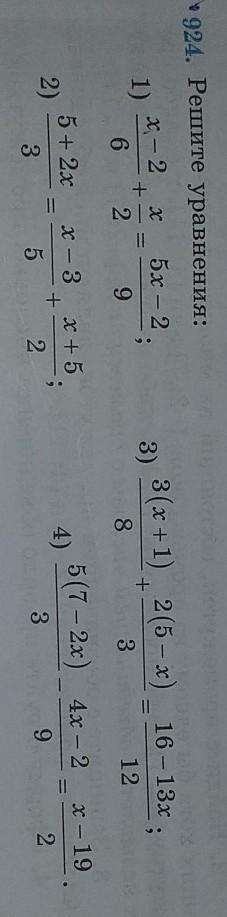 924. Решите уравнения:
1) (x − 2)/6 + x/2 = (5x − 2)/9;
2) (5 + 2x)/3 = (x − 3)/5 + (x + 5)/2;
3) 3(x + 1)/8 + 2(5 − x)/3 = (16 − 13x)/12;
4) 5(7 − 2x)/3 − (4x − 2)/9 = (x − 19)/2.